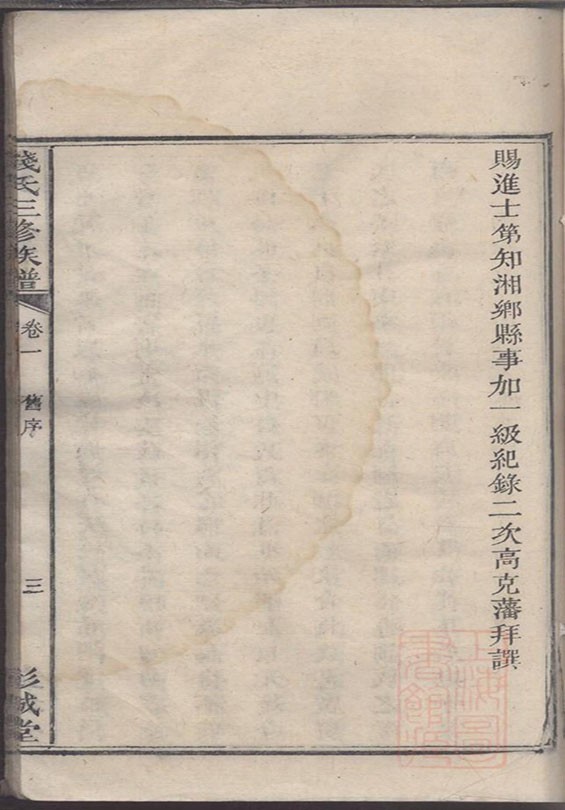 賜進士第知湘鄉縣事加一級紀錄二次高克藩拜譔
錢氏三修族譜
卷一
舊序
三
彭城堂